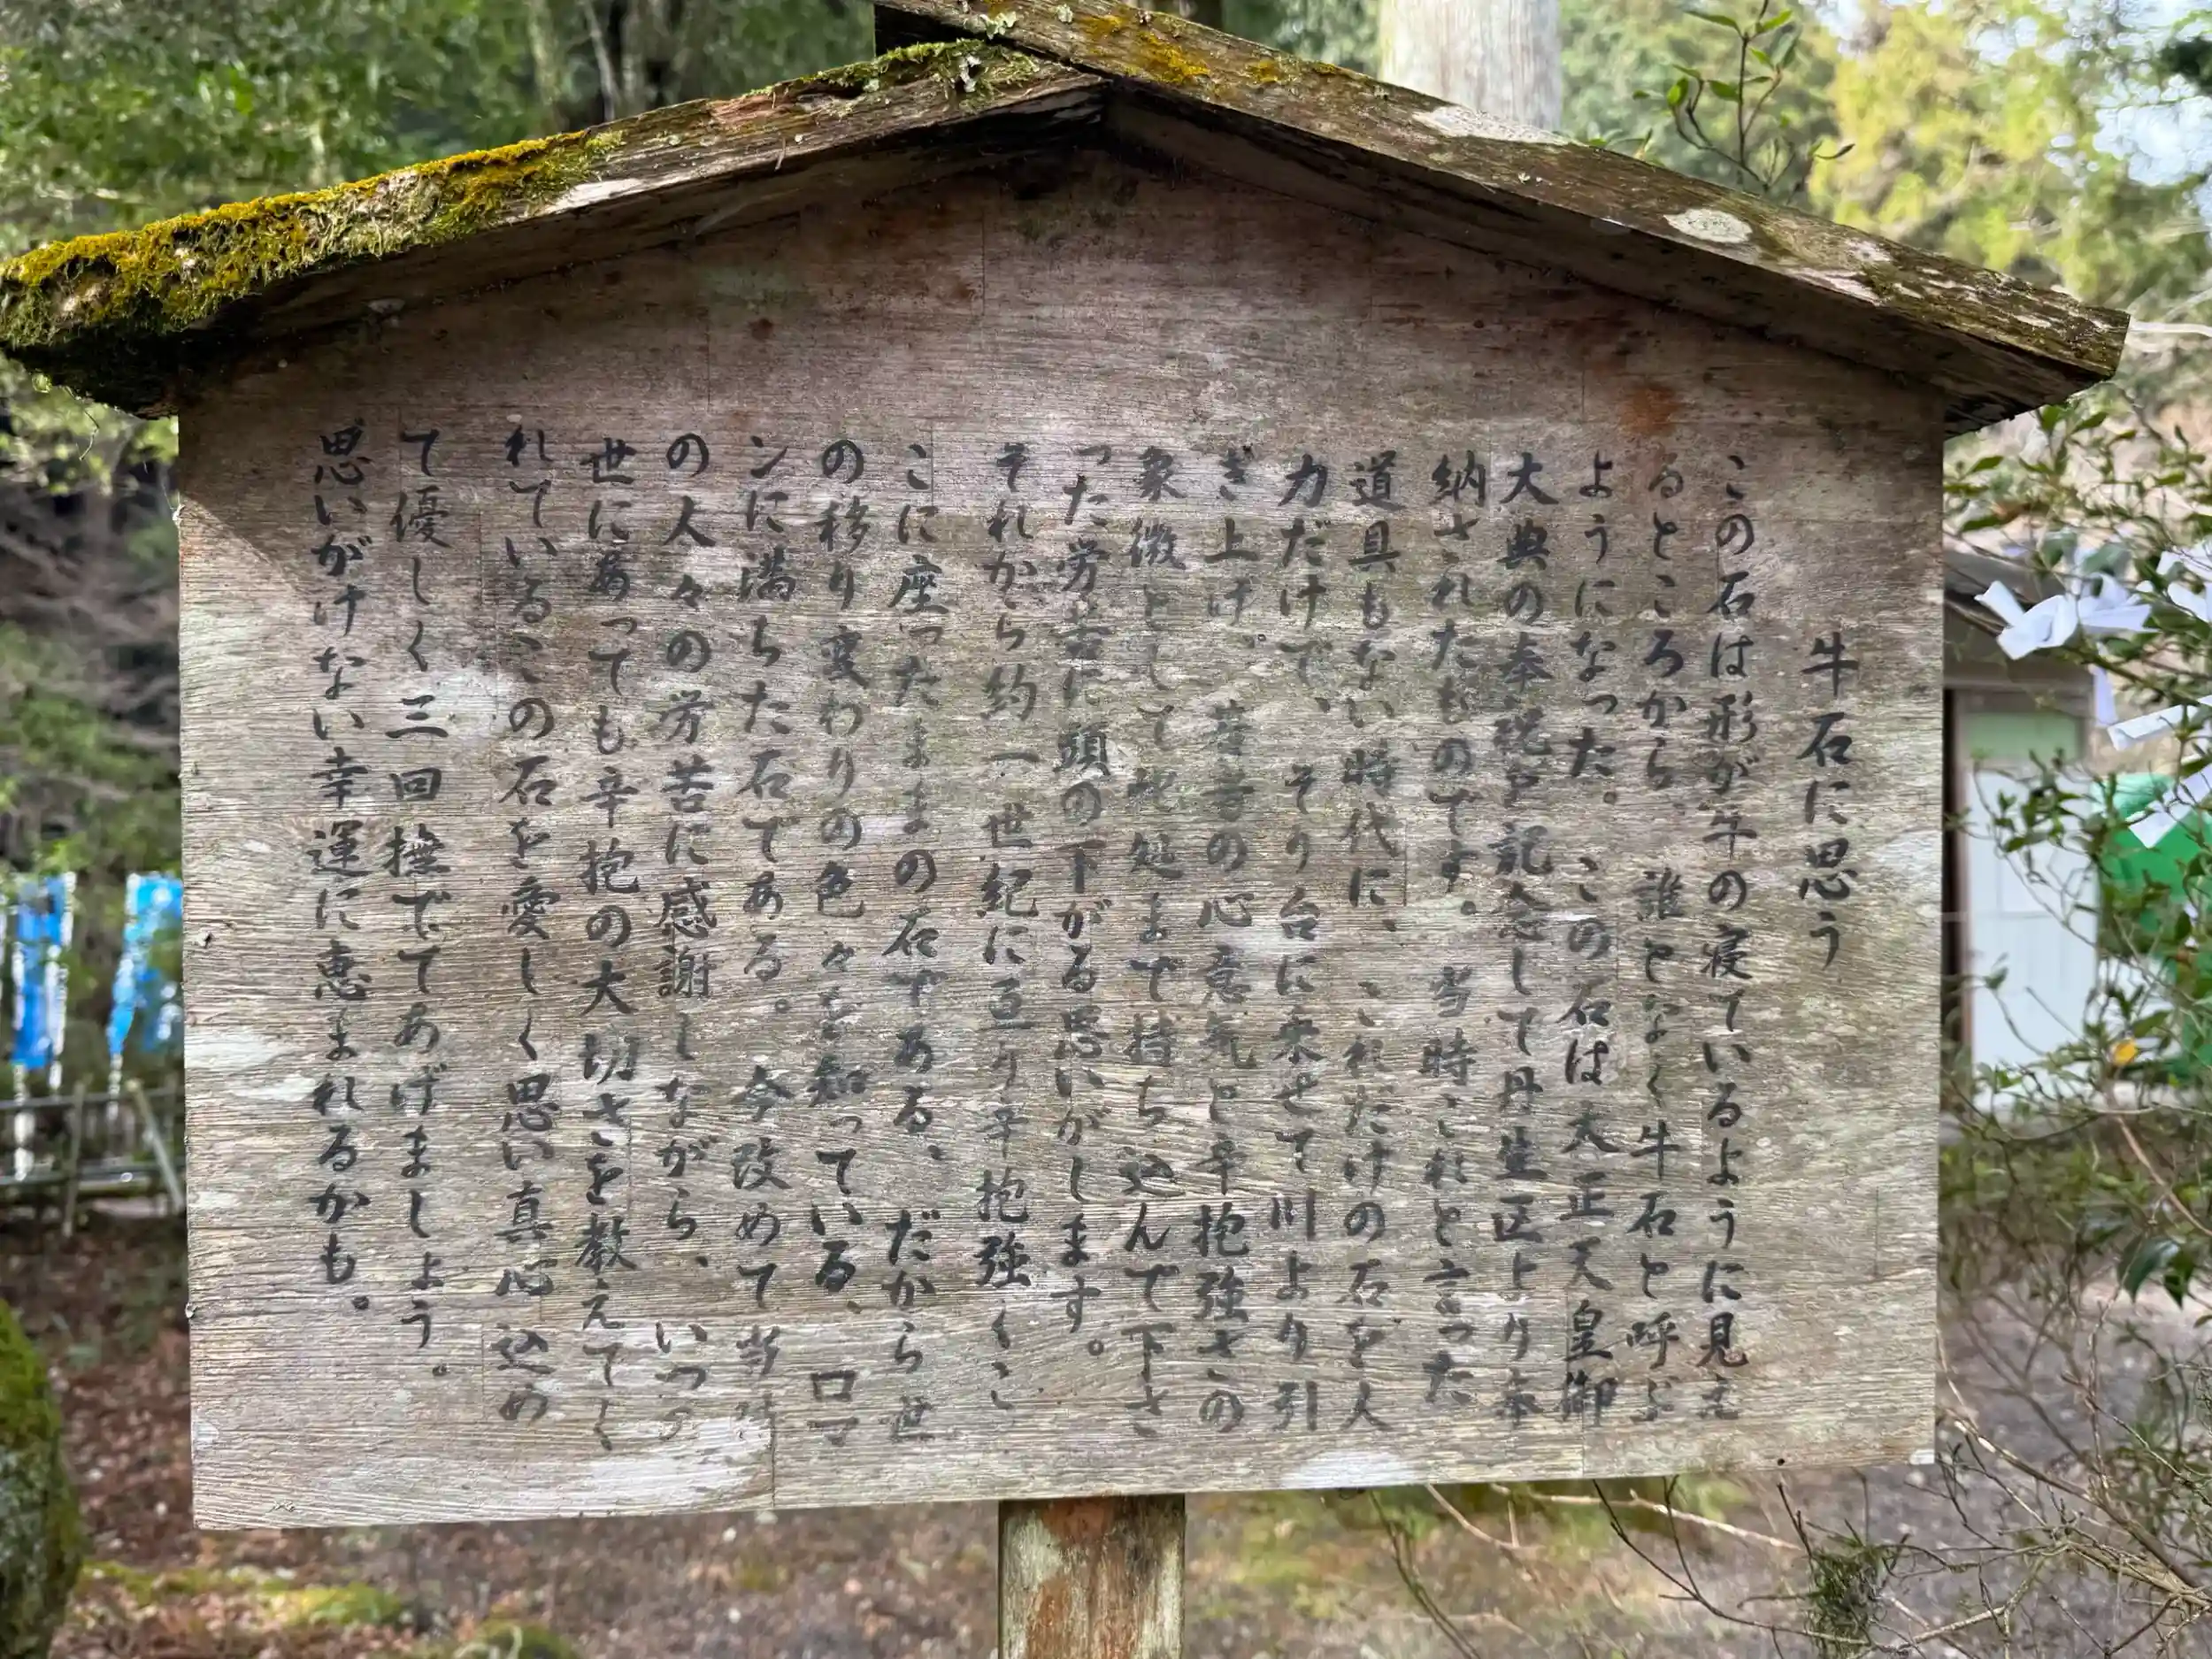 牛石に思う
この石は形が牛の寝ているように見え
るところから、誰となく牛石と呼ぶ
ようになった。この石は大正天皇御
大典の奉祝を記念して丹生区より奉
納されたものです。当時これと言った
道具もない時代に、これだけの石を人
力だけで、そり台に乗せて川より引
ぎ上げ。昔者の心意気と辛抱強さの
象徴として此処まで持ち込んで下さ
った労苦に頭の下がる思いがします。
それから約一世紀に亘り辛抱強くこ
こに座ったままの石である、だから世
の移り変わりの色々を知っている、ロマ
ンに満ちた石である。今改めて当時
の人々の労苦に感謝しながら、いつの
世にあっても辛抱の大切さを教えてく
れているこの石を愛しく思い真心込め
て優しく三回撫でてあげましょう。
思いがけない幸運に恵まれるかも。